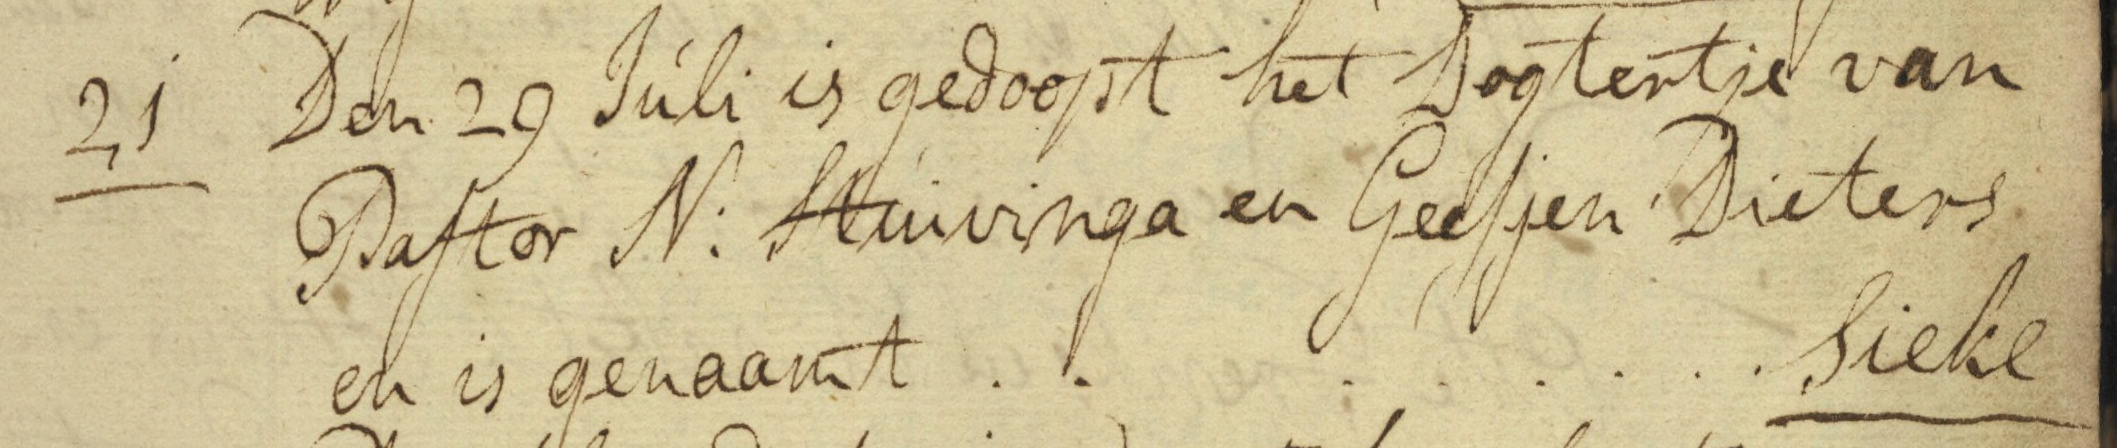 21 Den 29 Júli is gedoopt het Dogtertje van
Pastor N: Stúivinga en Geessjen Dieters
en is genaamt . . . . . . . . . Sieke